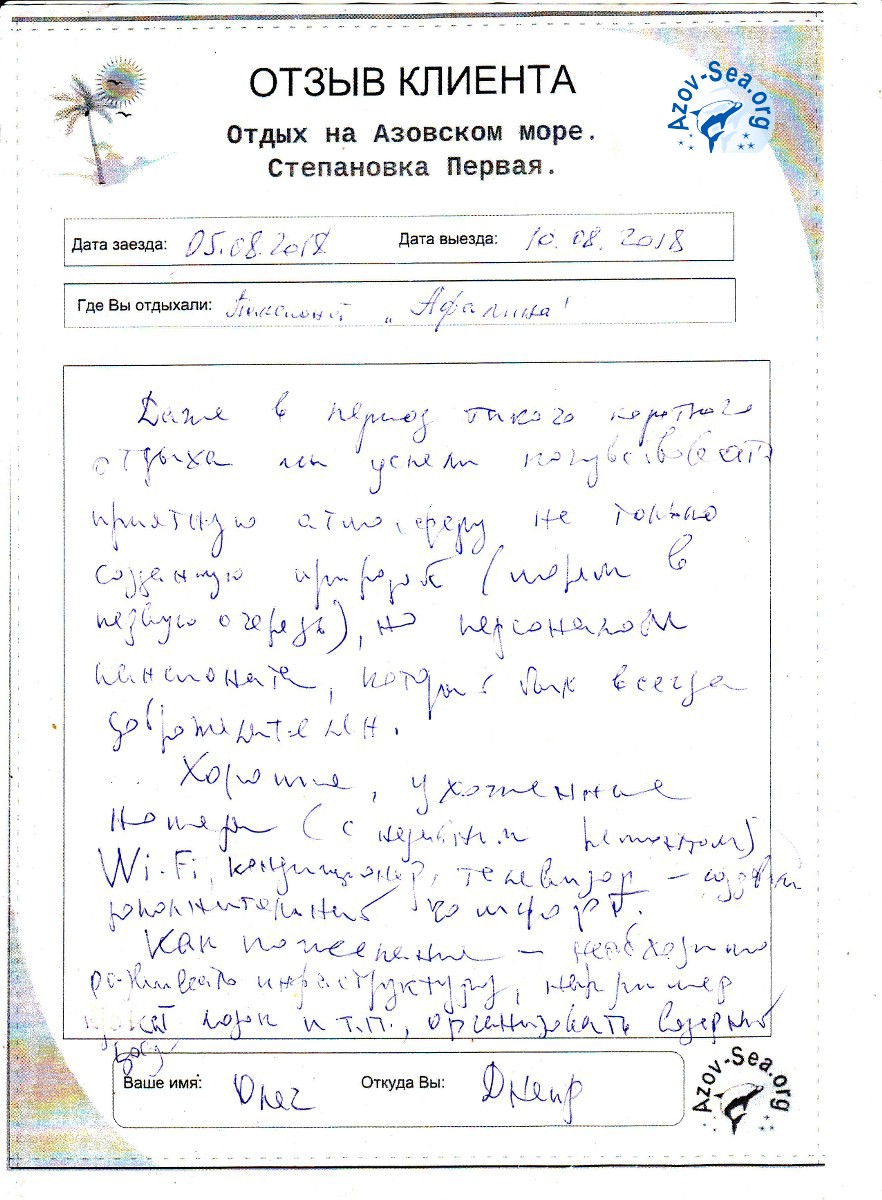 ОТЗЫВ КЛИЕНТА
Azov-Sea.org
Отдых на Азовском море.
Степановка Первая.
Дата заезда: 05.08.2018
Дата выезда: 10.08.2018
Где Вы отдыхали: Пансионат "Афалина"
Даже в период такого короткого
отдыха мы успели почувствовать
приятную атмосферу не только
созданную природой (морем в
первую очередь), но персоналом
пансионата, который был всегда
доброжелателен.
Хорошие, ухоженные
номера (с недавним ремонтом)
Wi-Fi, кондиционер, телевизор –
дополнительный комфорт.
Как пожелание – необходимо
развивать инфраструктуру, например
прокат лодок и т.п., организовать
Ваше имя: Олег
Откуда Вы: Днепр
Azov-Sea.org